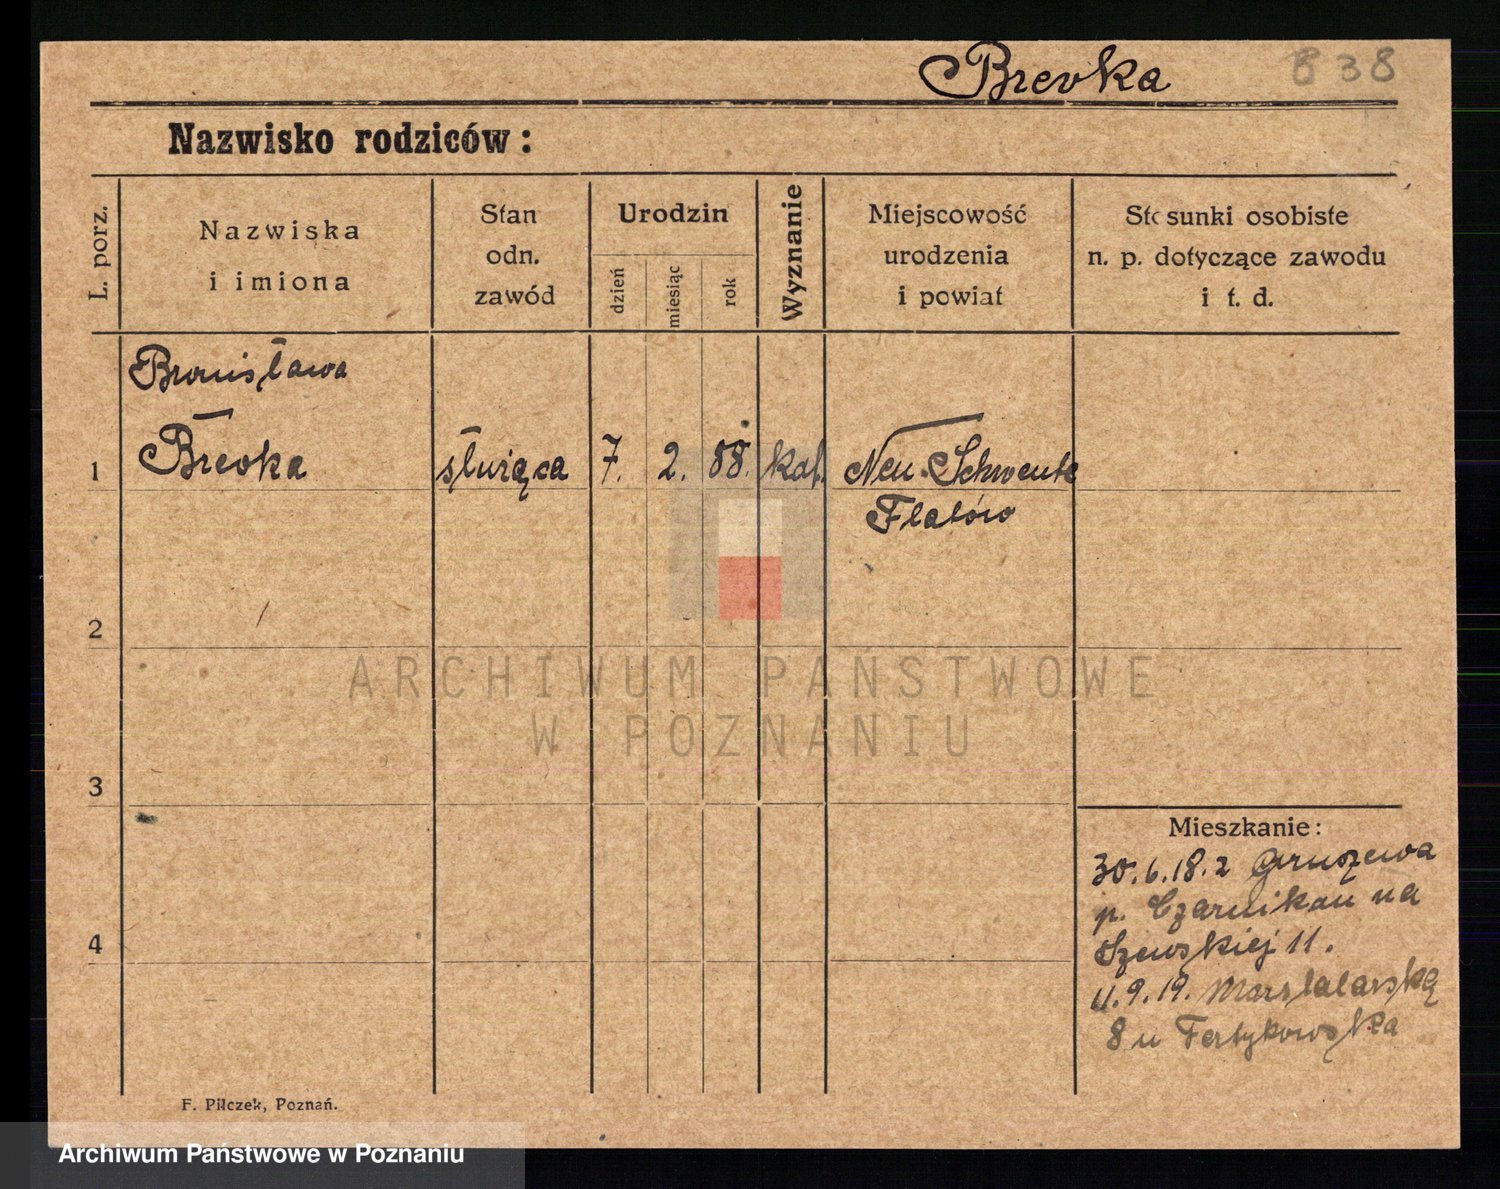 Brevka 838
Nazwisko rodziców:
L. porz.
Nazwiska
i imiona
Stan
odn.
zawód
Urodzin
dzień
miesiąc
rok
Wyznanie
Miejscowość
urodzenia
i powiat
Stosunki osobiste
n. p. dotyczące zawodu
i t. d.
Bronisława
1 Brevka służąca 7. 2. 88. kat. Neu-Schwente
Flatów
2
3
4
ARCHIWUM PAŃSTWOWE
W POZNANIU
Mieszkanie:
30.6.18. z Gruszewa
p. Czarnikau na
Szewskiej 11.
11.9.19. Masztalarską
8 u
F. Pilczek, Poznań.
Archiwum Państwowe w Poznaniu